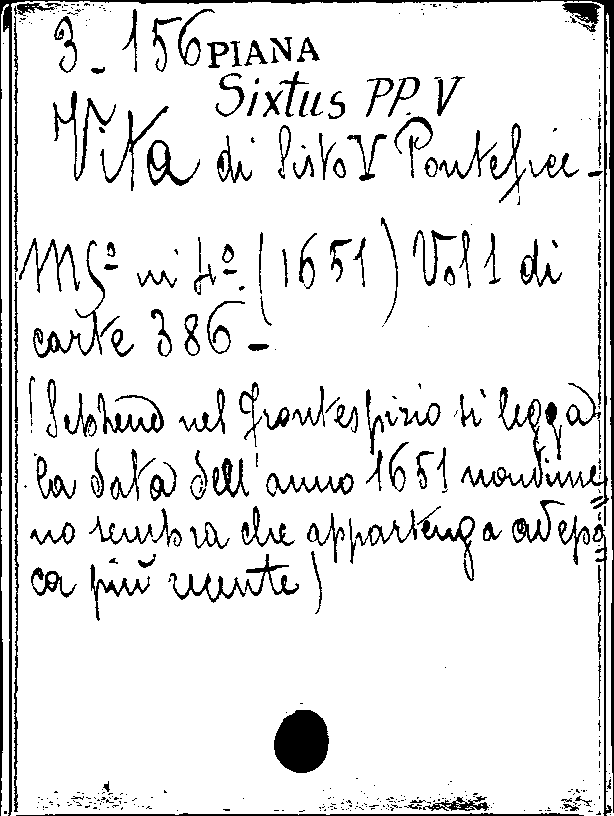 3_156 PIANA
Sixtus PP. V
Vita di Sisto V Pontefice -
MSº in 4º. (1651) Vol 1 di
carte 386 -
(Sebbene nel frontespizio si legga
la data dell'anno 1651 nondime
no sembra che appartenga ad epo=
ca più recente)